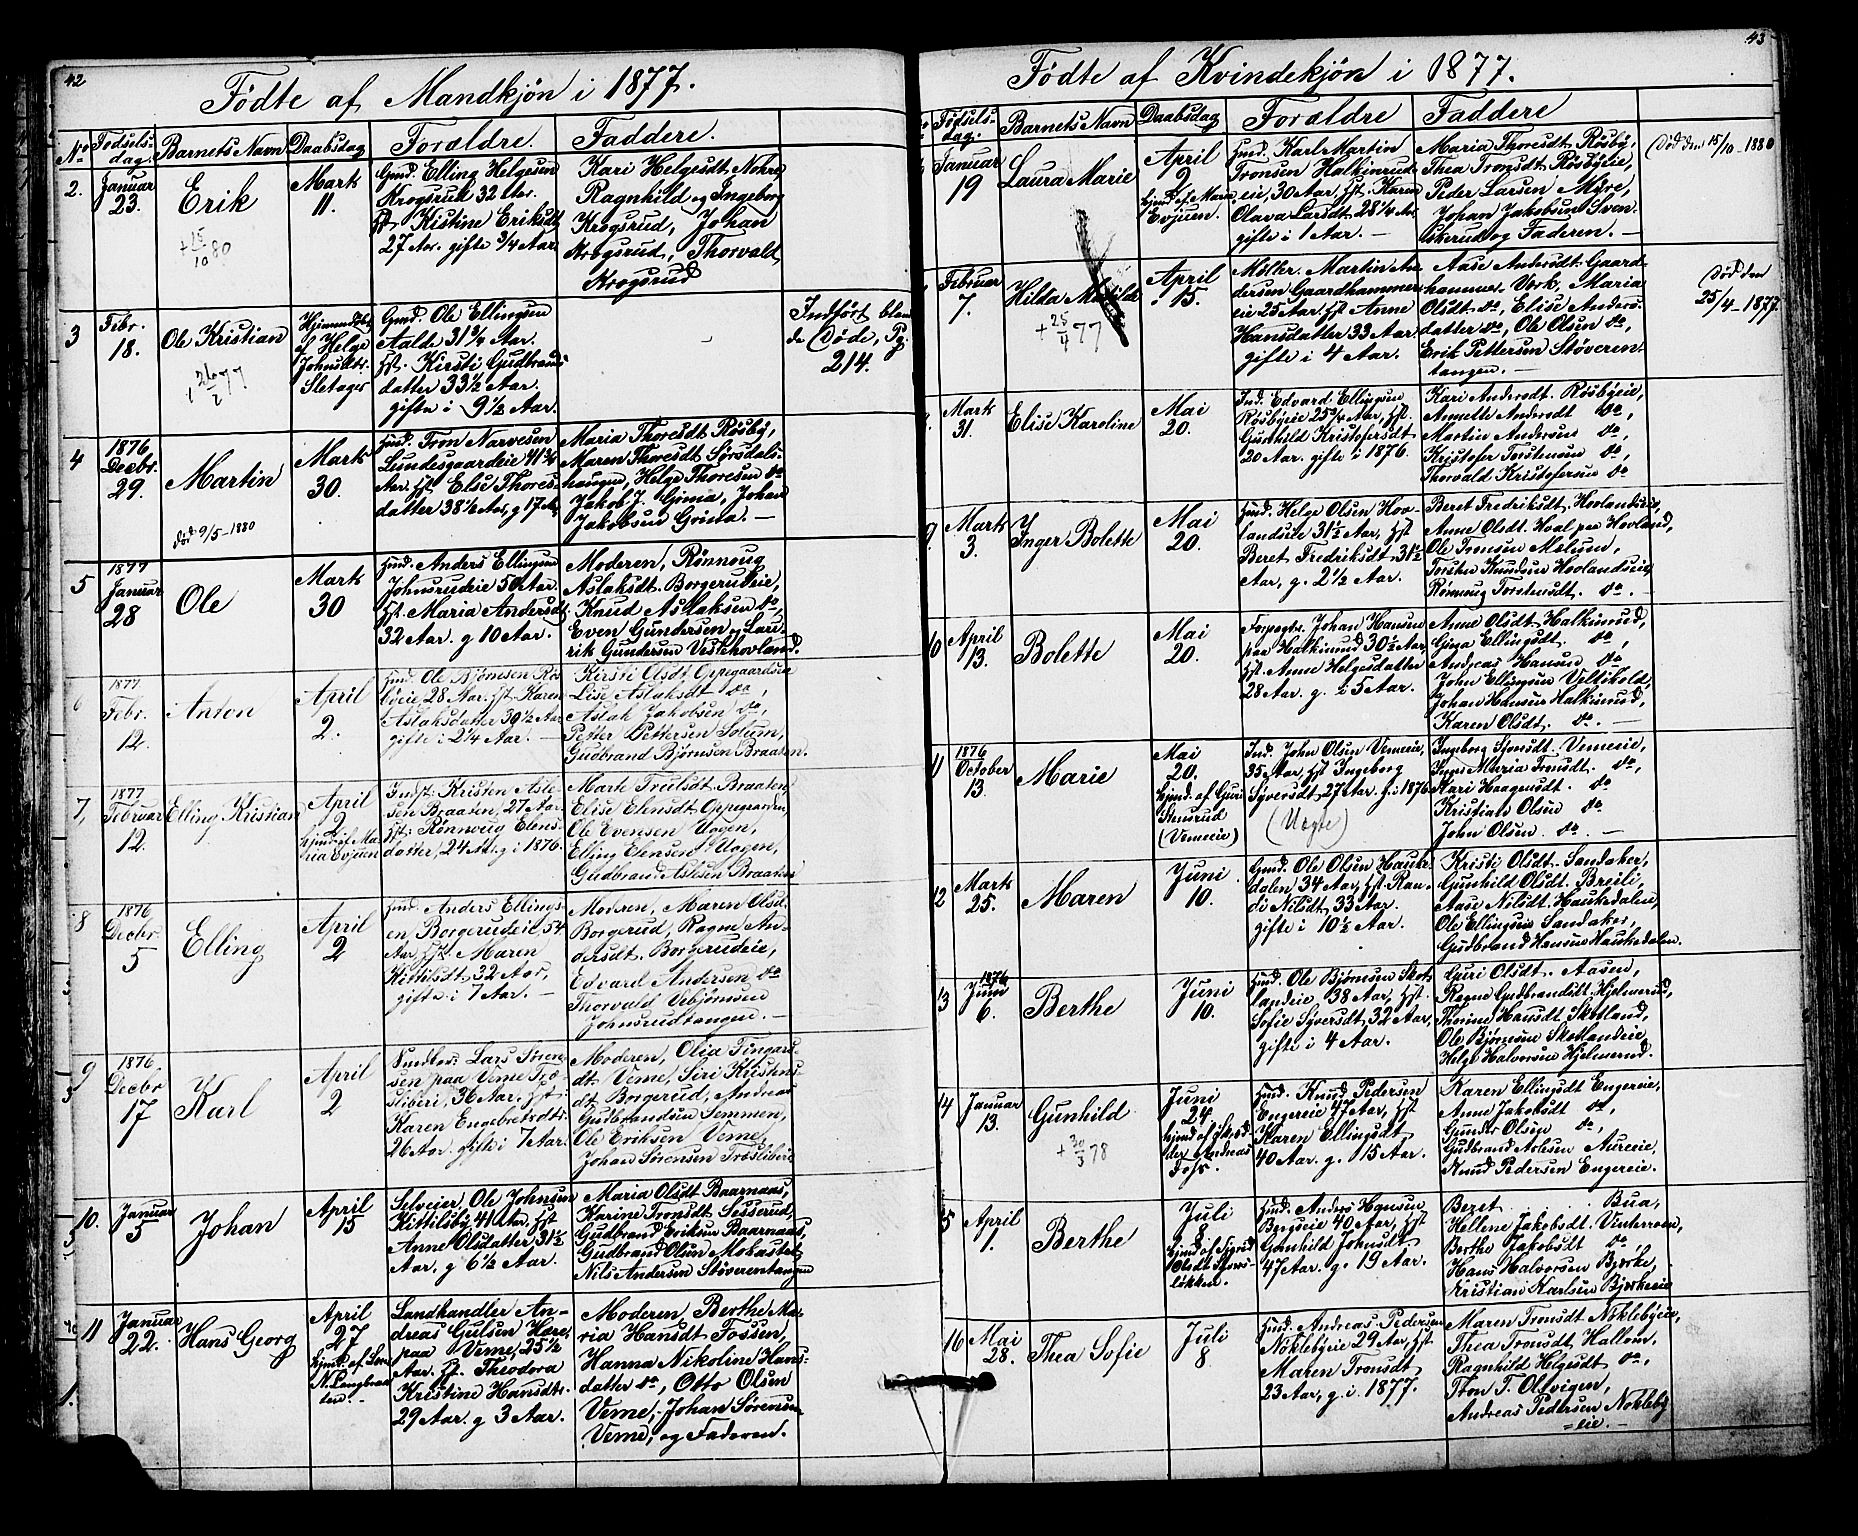 42
Fødte af Mandkjøn i 1877.
No Fødsels-dag. Barnets Navn Daabsdag Forældre. Faddere.
2. Januar 23. Erik
+ 15/10 80
Mark 11.
Gmd. Elling Helgesen
Krogsrud 32 Aar.
Hst. Kistine Eriksdt
27 Aar. gifte 3/4 Aar.
Kari Helgesdt Nohre
Ragnhild og Ingeborg
Krogsrud, Johan
Krogsrud, Thorvald
Krogsrud
3 Febr. 18. Ole Kristian
26/2 77
Hjemmedøbt
af Helge
Johnsdtr.
Sletager
Gmd. Ole Ellingsen
Aalde 31 3/4 Aar.
Hst. Kirsti Gudbrands
datter 33 1/2 Aar.
gifte i 9 1/2 Aar.
Indført blan
de Døde, Pg.
214.
4 1876 Decbr. 29. Martin
død 9/5-1880
Mark 30.
Hmd. Tron Narvesen
Lundesgaardeie 41 3/4
Aar. Hst. Else Thores-
datter 38 1/2 Aar, g 17 Aar
Maria Thoresdt Røsby,
Maren Thoresdt Sørsdals-
haugen, Helge Thoresen do
Jakob J. Grina, Johan
Jakobsen Grina. —
5 1877 Januar 28 Ole
Mark 30
Hmd. Anders Ellingsen
Johnsrudeie 50 Aar.
Hst. Maria Andersdt.
32 Aar. g 10 Aar.
Moderen, Rønnoug
Aslaksdt. Borgerudeie,
Knud Aslaksen do,
Even Gundersen og Lau-
rik Gundersen Vestehovland.
6 1877 Febr. 12. Anton
April 2.
Hmd. Ole Bjørnsen Røs
byeie 28 Aar. Hst Karen
Aslaksdatter 30 1/2 Aar
gifte i 2 1/4 Aar. —
Kirsti Olsdt Oppegaardseie
Lise Aslaksdt do,
Aslak Jakobsen do,
Petter Pettersen Solum,
Gudbrand Bjørnsen Braaten.
7, 1877 Februar 12. Elling Kristian
April 2
hjmd. af Ma
ria Evjuen
Indst. Kristen Asle-
sen Braaten, 27 Aar.
Hst: Rønnoug Elens-
datter, 24 Aar, g i 1876.
Marte Trulsdt Braaten,
Elise Elensdt Oppegarden,
Ole Evensen Uogen,
Elling Elensen Uogen,
Gudbrand Aslesen Braaten
8 1876 Decbr 5 Elling
April 2
Hmd. Anders Ellings-
en Borgerudeie, 54
Aar, Hst. Maren
Kittilsdt 32 Aar,
gifte i 7 Aar. —
Moderen, Maren Olsd.
Borgerud, Ragne An-
dersdt. Borgerudeie,
Edvard Andersen do
Thorvald Vebjørnsen
Johnsrudtangen. —
9 1876 Decbr 17 Karl
April 2
Sundbes: Lars Søren-
sen paa Verne Træ-
sliberi, 36 Aar, Hst.:
Karen Engebretsdtr
26 Aar. gifte i 7 Aar.
Moderen, Olia Fingars-
dt Verne, Siri Kristens-
dt Borgerud, Andreas
Gudbrandsen Semmen,
Ole Eriksen Verne,
Johan Sørensen Træsliberi
10. Januar 5 Johan
April 15
Selveier Ole Johnsen
Kittilsby 41 Aar. Hst
Anne Olsdatter 31 1/2
Aar, g 6 1/2 Aar.
Maria Olsdt Baarnaas,
Karine Tronsdt Sesserud,
Gudbrand Eriksen Baarnaas,
Gudbrand Olsen Mokastet,
Nils Andersen Støverentangen
11 Januar 22. Hans Georg
April 27
hjmd. af Lene
N. Langbraa-
ten. -
Landhandler An-
dreas Gulsen Hære,
paa Verne, 25 1/2
Aar. Hst. Theodora
Kristine Hansdtr.
29 Aar. g 3 Aar.
Moderen, Berthe Ma-
ria Hansdt Fossen,
Hanna Nikoline Hans-
datter do, Otto Olsen
Verne, Johan Sørensen
Verne, og Faderen.
43
Fødte af Kvindekjøn i 1877.
Fødsels-dag. Barnets Navn Daabsdag Forældre Faddere
Januar 19 Laura Marie
April 9
hjmd. af Maria
Evjuen.
Hmd. Karl Martin
Tronsen Halkinrud-
eie, 30 Aar, Hst. Karen
Olava Larsdt 28 1/4 Aar
gifte i 1 Aar. —
Maria Thoresdt Røsby,
Thea Tronsdt Røsbyeie,
Peder Larsen Myre,
Johan Jakobsen Sven-
skerud og Faderen. —
Død den 15/10-1880
Februar 7. Hilda Matilde
+ 25/4 77
April 15.
Møller. Martin An-
dersen Gaardhammer-
eie 25 Aar. Hst Anne
Hansdatter 33 Aar.
gifte i 4 Aar.
Aase Andersdt Gaard-
hammer Verk, Maria
Olsdt. do, Elise Anders-
datter do, Ole Olsen do,
Erik Pettersen Støveren-
tangen. —
Død den
25/4-1877.
Mark 31. Elise Karoline
Mai 20.
Ind. Edvard Ellingsen
Røsbyeie 25 3/4 Aar, Hst.
Gunhild Kristofersdt
20 Aar. gifte i 1876.
Kari Andersdt. Røsbyeie,
Annette Andersdt do,
Martin Andersen do,
Kristofer Torstensen do,
Thorvald Kristofersen do
9. Mark 3. Inger Bolette
Mai 20.
Hmd. Helge Olsen Hov-
landseie 31 1/2 Aar, Hst
Beret Fredriksdt 31 1/2
Aar, g. 2 1/2 Aar.
Beret Fredriksdt, Hovlandseie,
Anne Olsdt. Hval paa Hovland,
Ole Tronsen Mælum,
Torsten Knudsen Hovlandseie,
Rønnoug Torstensdt. do. —
10 April 13. Bolette
Mai 20.
Forpagter Johan Hansen
paa Halkinrud 30 1/2 Aar,
Hst. Anne Helgesdatter
28 Aar. g. i 5 Aar.
Anne Olsdt Halkinrud,
Gina Ellingsdt. do,
Andreas Hansen do
John Ellingsen Veltihold,
Johan Hansen Halkinrud,
Karen Olsdt. do. —
11 1876 October 13. Marie
Mai 20.
hjmd. af Guri
Stensrud
(Verneeie)
Ind. John Olsen Verneeie,
35 Aar, Hst Ingeborg
Syversdt 27 Aar. g. i 1876
(Uægte)
Ingeborg Simsdt. Verneeie,
Inger Maria Tronsdt. do,
Kari Haagensdt. do
Kristian Olsen do
John Olsen. do. —
12 Mark 25. Maren
Juni 10.
Gmd. Ole Olsen Hauke-
dalen 34 Aar, Hst. Ran-
di Nilsdt. 33 Aar.
gifte i 10 1/2 Aar.
Kristi Olsdt. Sandaker,
Gunhild Olsdt. Breili,
Aase Nilsdt. Haukedalen,
Ole Ellingsen Sandaker,
Gudbrand Hansen Haukedalen.
13 1876 Juni 6. Berthe
Juni 10.
Hmd. Ole Bjørnsen Skot-
landeie 38 Aar, Hst.
Sofie Syversdt, 32 Aar,
gifte i 4 Aar.
Guri Olsdt. Aasen,
Ragne Gudbrandsdt. Hjelmerud,
Thorine Hansdt. Skotland,
Ole Bjørnsen Skotlandeie,
Helge Halvorsen Hjelmerud.
14 Januar 13. Gunhild
+ 30/3 78
Juni 24
hjmd. af Skræd-
der Andreas
Dofs.
Hmd. Knud Pedersen
Engereie 47 Aar, Hst
Karen Ellingsdt
40 Aar. g. 15 Aar.
Karen Ellingsdt Engereie,
Anne Jakobsdt do,
Gunder Olsen do,
Gudbrand Aslesen Aureeie,
Knud Pedersen Engereie.
15 April 1. Berthe
Juli 1
hjmd. af Sigrid
Olsdt Sjons-
løkken.
Hmd. Anders Hansen
Bergseie 40 Aar, Hst
Gunhild Johnsdt.
47 Aar. g. 19 Aar.
Beret . . Bua,
Hellene Jakobsdt. Vinterroen,
Berthe Jakobsdt do,
Hans Halvorsen Bjørke,
Kristian Karlsen Bjørkeeie
16 Mai 28. Thea Sofie
Juli 8
Hmd. Andreas Pedersen
Nøklebyeie 29 Aar, Hst.
Maren Tronsdt
23 Aar, g. i. 1877.
Maren Tronsdt Nøklebyeie,
Thea Tronsdt Hallom,
Ragnhild Helgesdt do,
Tron T. Olsvigen,
Andreas Pedersen Nøkleby
=eie. —